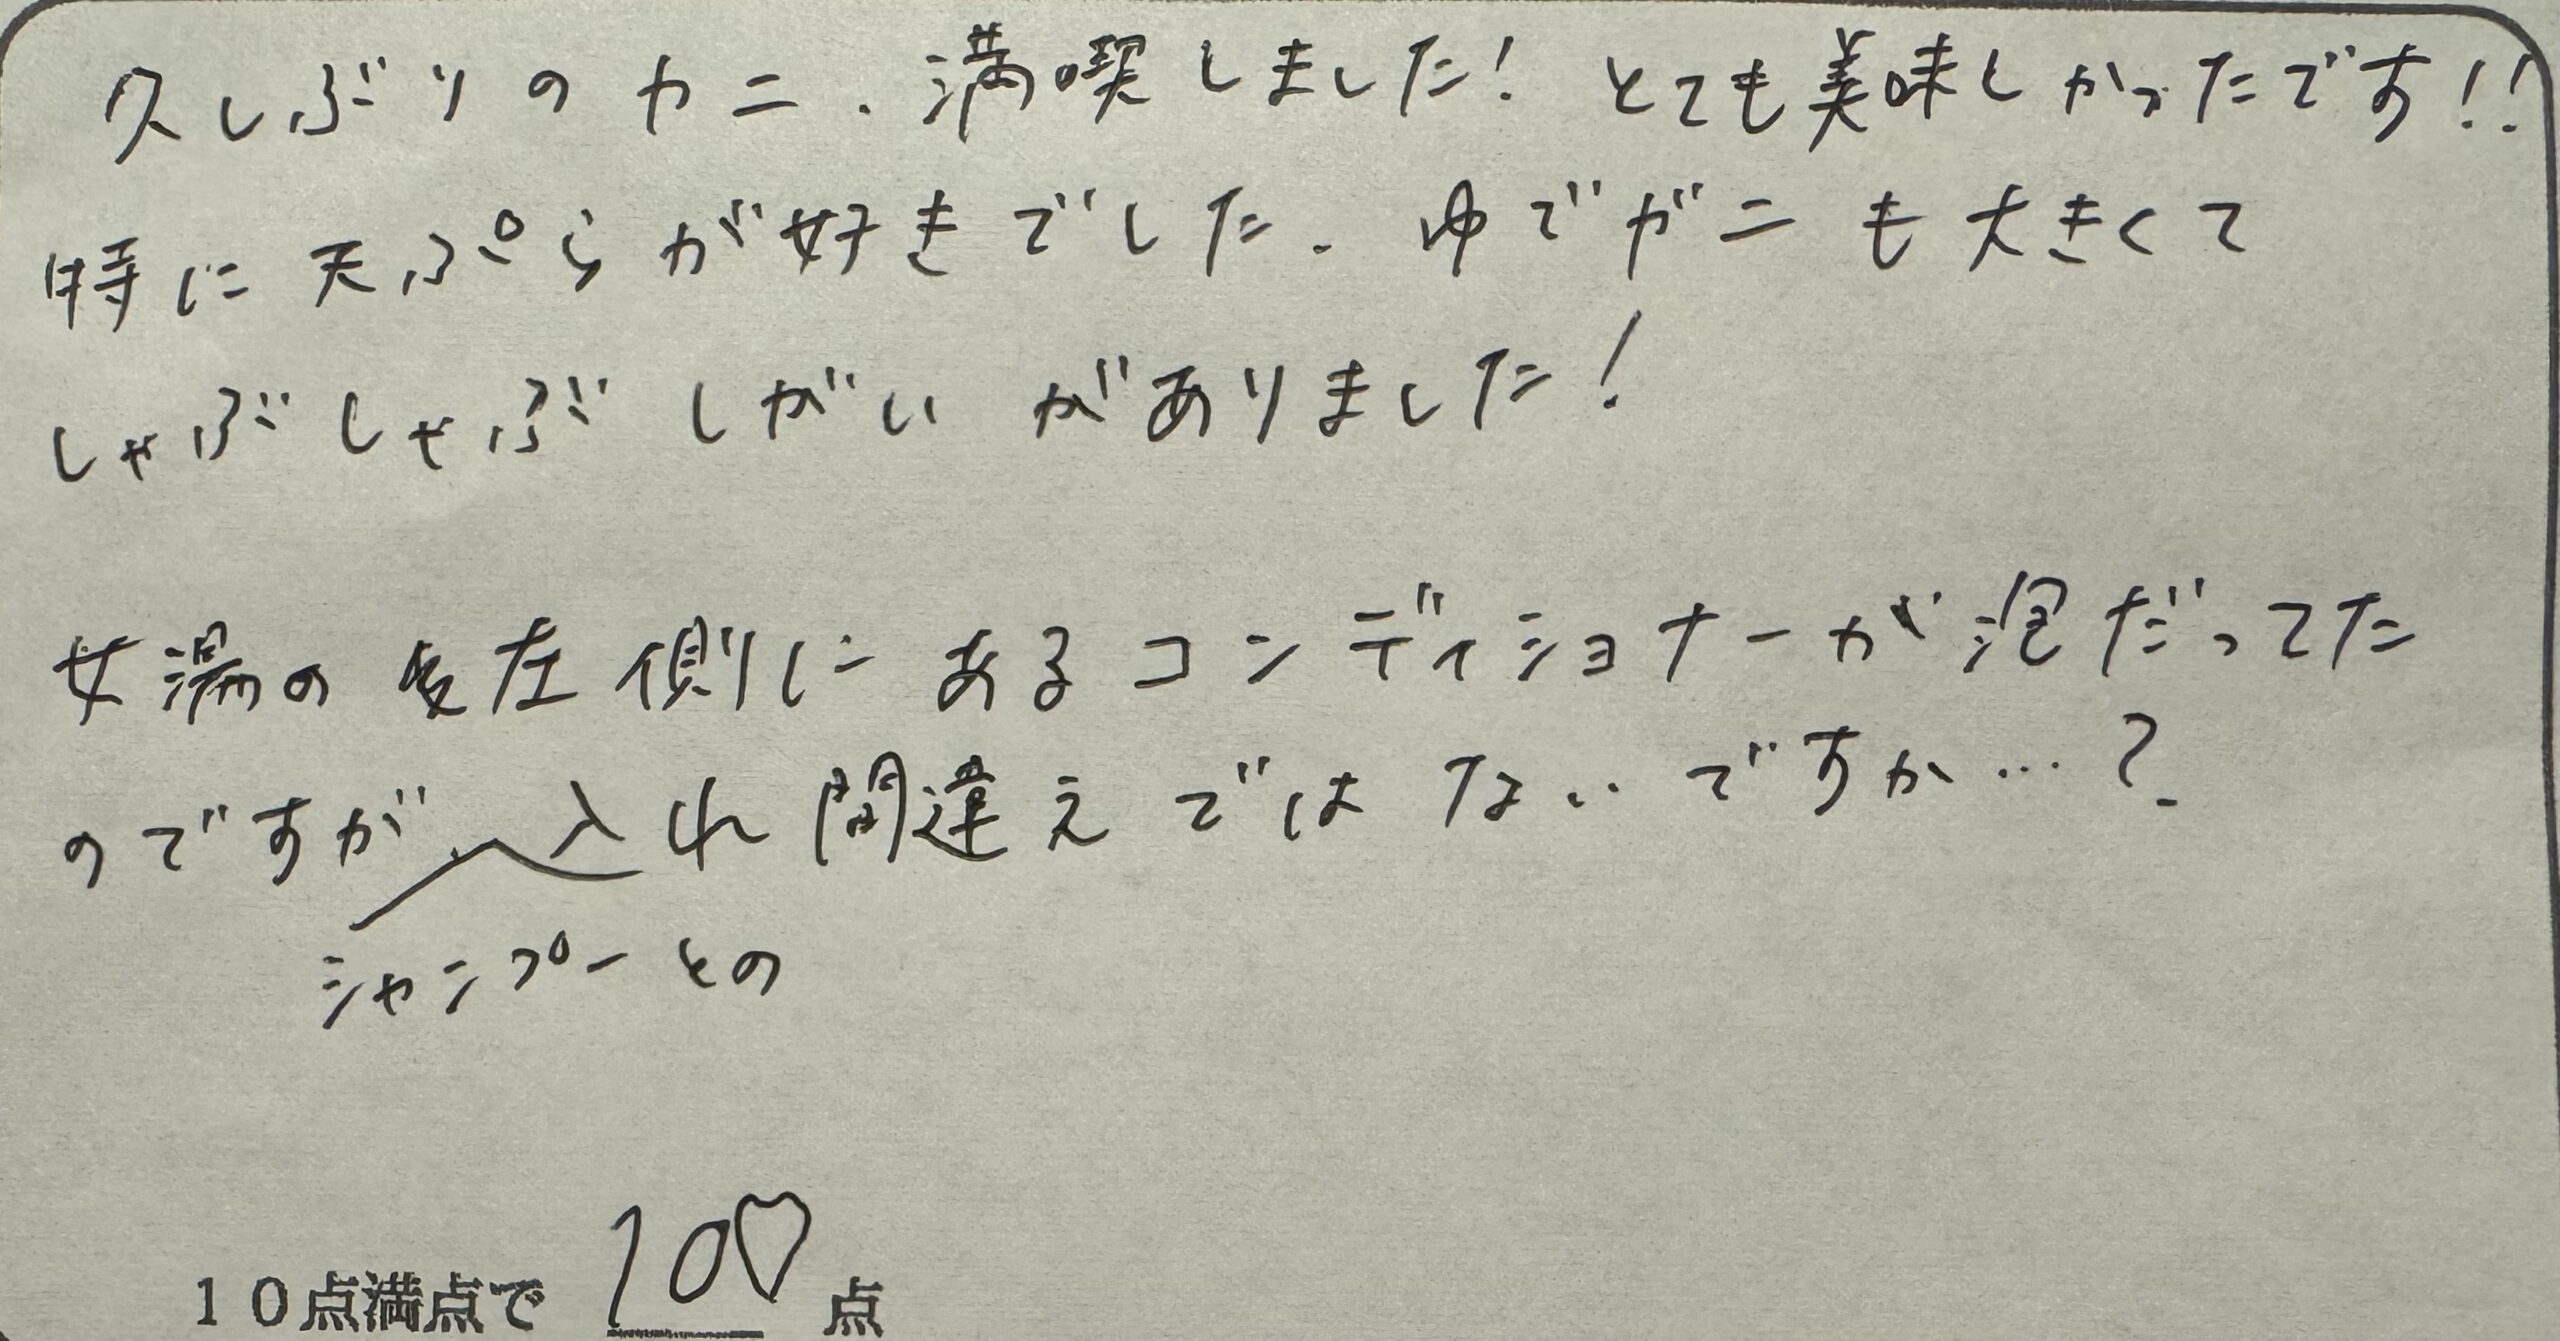 久しぶりのカニ、満喫しました! とても美味しかったです!!
特に天ぷらが好きでした。ゆでガニも大きくて
しゃぶしゃぶしがいがありました!
女湯の左側にあるコンディショナーが泡だってた
のですが、入れ間違えではないですか…?
シャンプーとの
10点満点で 10♡ 点